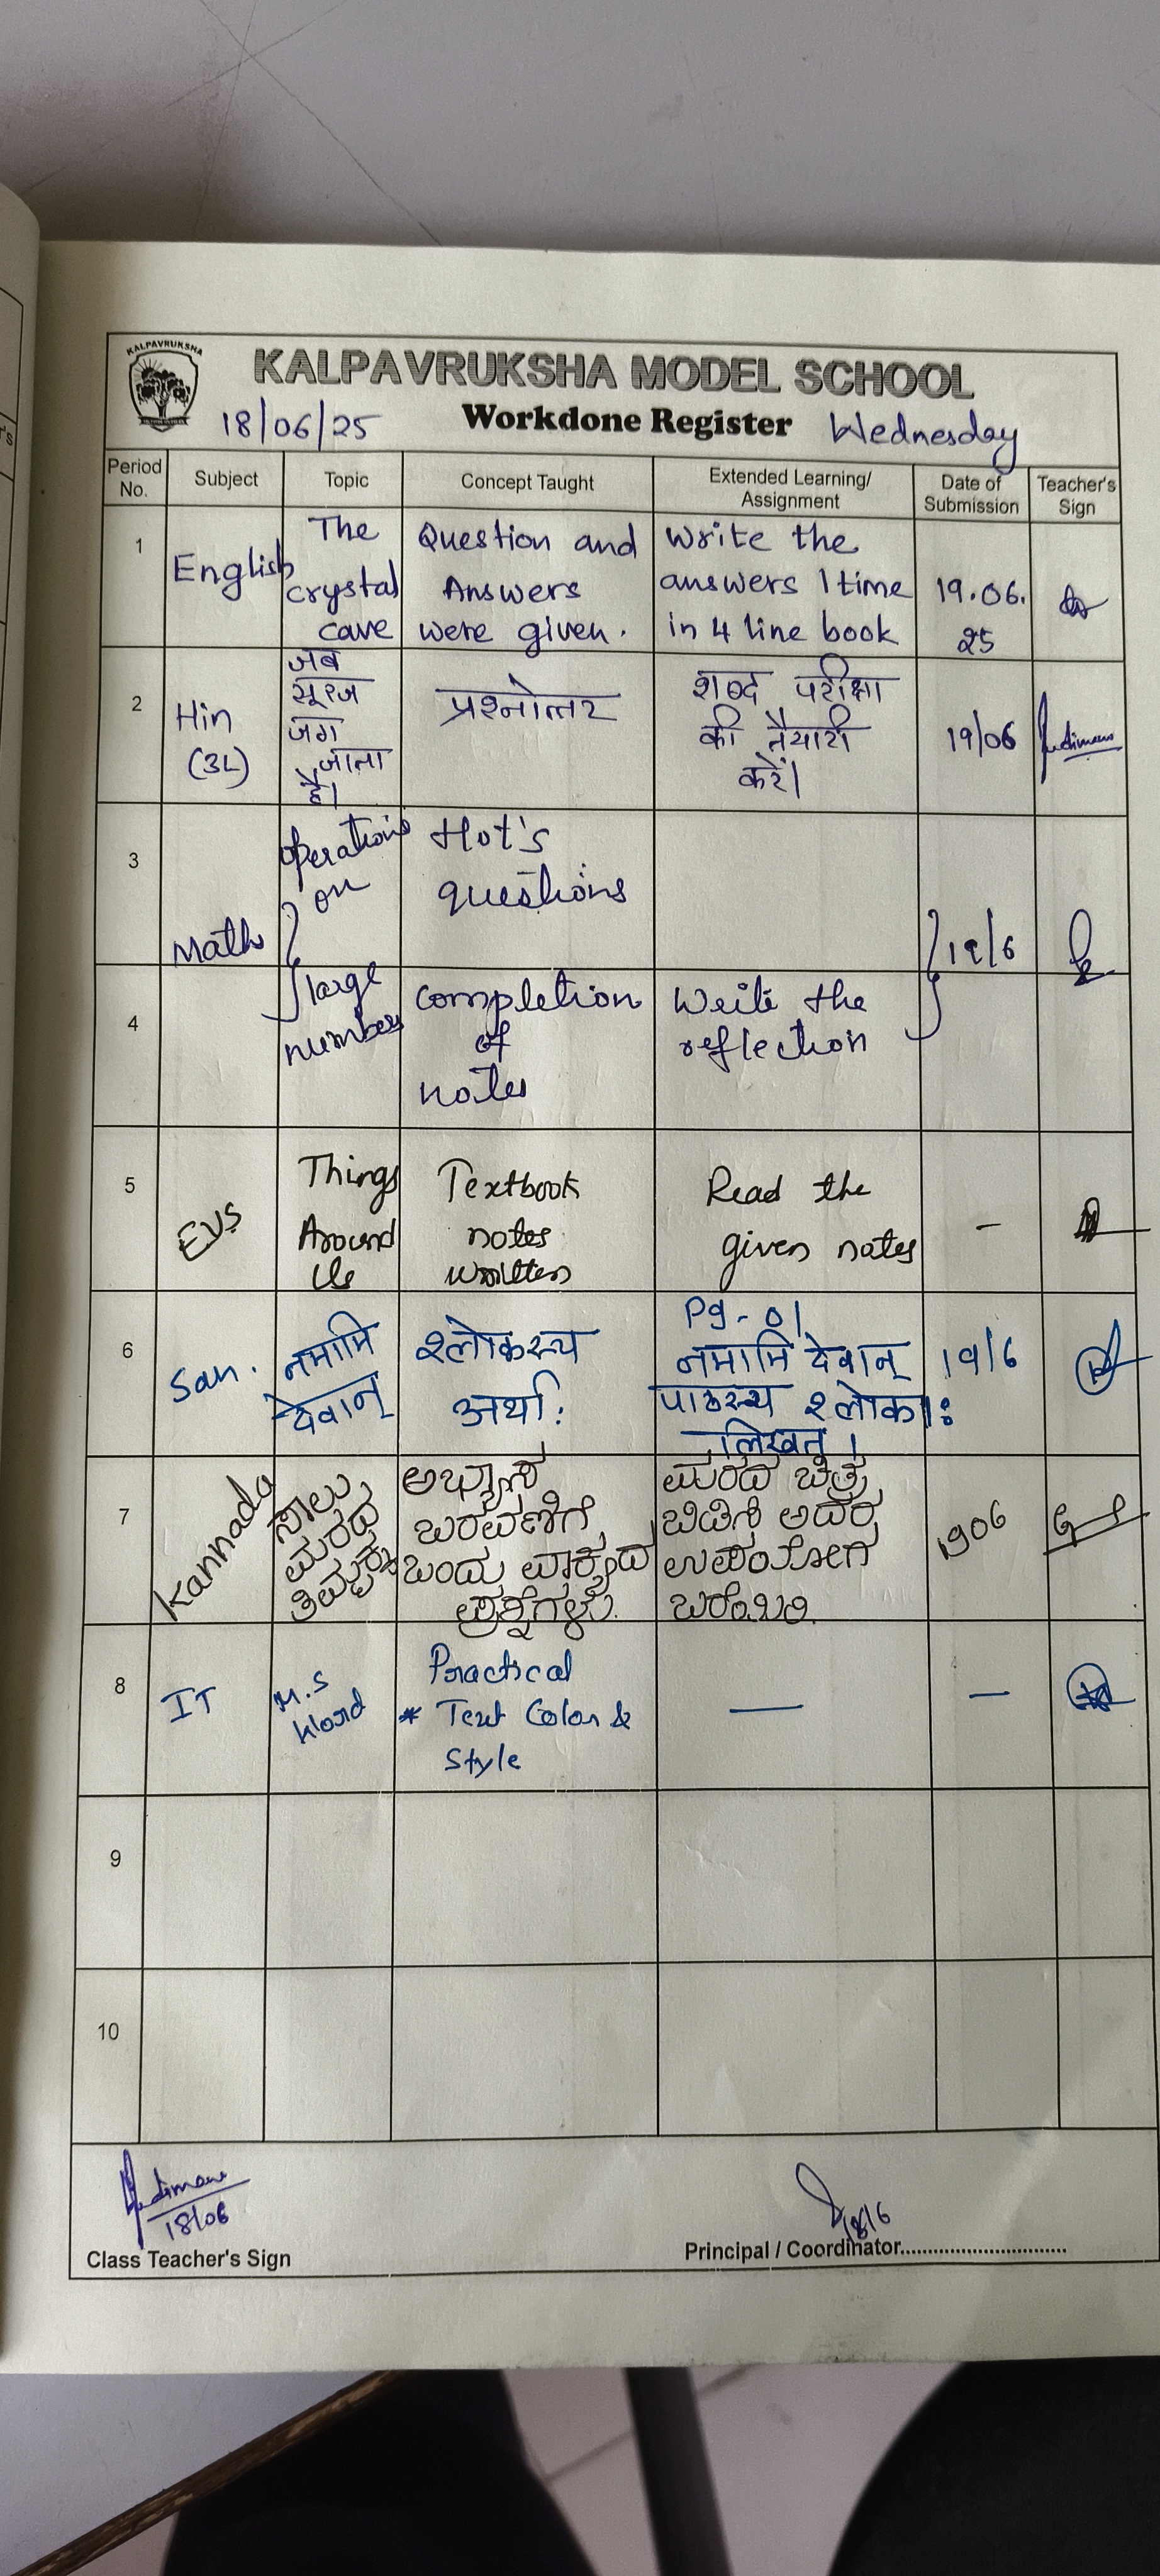 KALPAVRUKSHA
KALPAVRUKSHA MODEL SCHOOL
18/06/25 Workdone Register Wednesday
Period No. Subject Topic Concept Taught Extended Learning/ Assignment Date of Submission Teacher's Sign
1
English
The
crystal
cave
Question and
Answers
were given.
Write the
answers 1 time
in 4 line book
19.06.
25
2
Hin
(3L)
जब
सूरज
जग
जाता
है।
प्रश्नोत्तर
शब्द परीक्षा
की तैयारी
करें।
19/06
3
Math
operations
on
Hot's
questions
19/6
4
large
numbers
completion
of
notes
Write the
reflection
5
EVS
Things
Around
Us
Textbook
notes
written
Read the
given notes
-
6
San.
नमामि
देवान्
श्लोकस्य
अर्था:
Pg-01
नमामि देवान्
पाठस्य श्लोका:
लिखत।
19/6
7
Kannada
ಸಾಲು
ಮರದ
ತಿಮ್ಮಕ್ಕ
ಅಭ್ಯಾಸ
ಬರವಣಿಗೆ
ಒಂದು ವಾಕ್ಯದ
ಪ್ರಶ್ನೆಗಳು.
ಮರದ ಚಿತ್ರ
ಬಿಡಿಸಿ ಅದರ
ಉಪಯೋಗ
ಬರೆಯಿರಿ.
1906
8
IT
M.S
Word
Practical
* Text Color &
Style
—
—
9
10
18/06
18/6
Class Teacher's Sign
Principal / Coordinator..............................